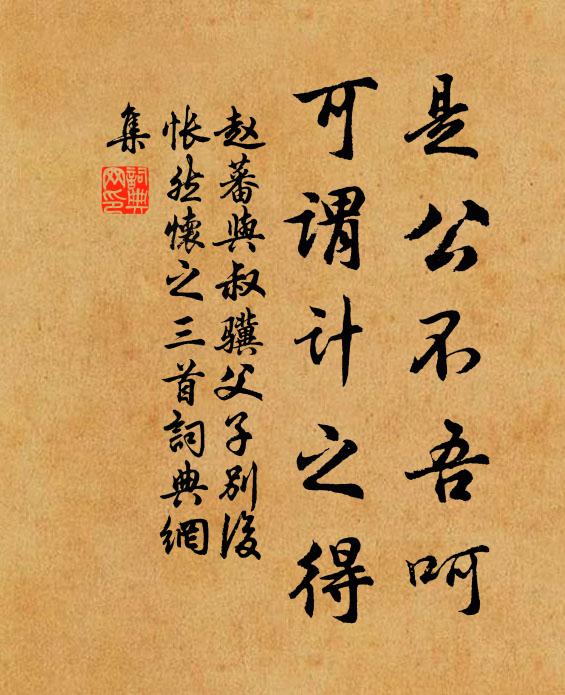 是公不吾呵
可謂计之得
赵蕃與叔骥父子别後
怅然懷之三首詞典網
集
詞典
网印